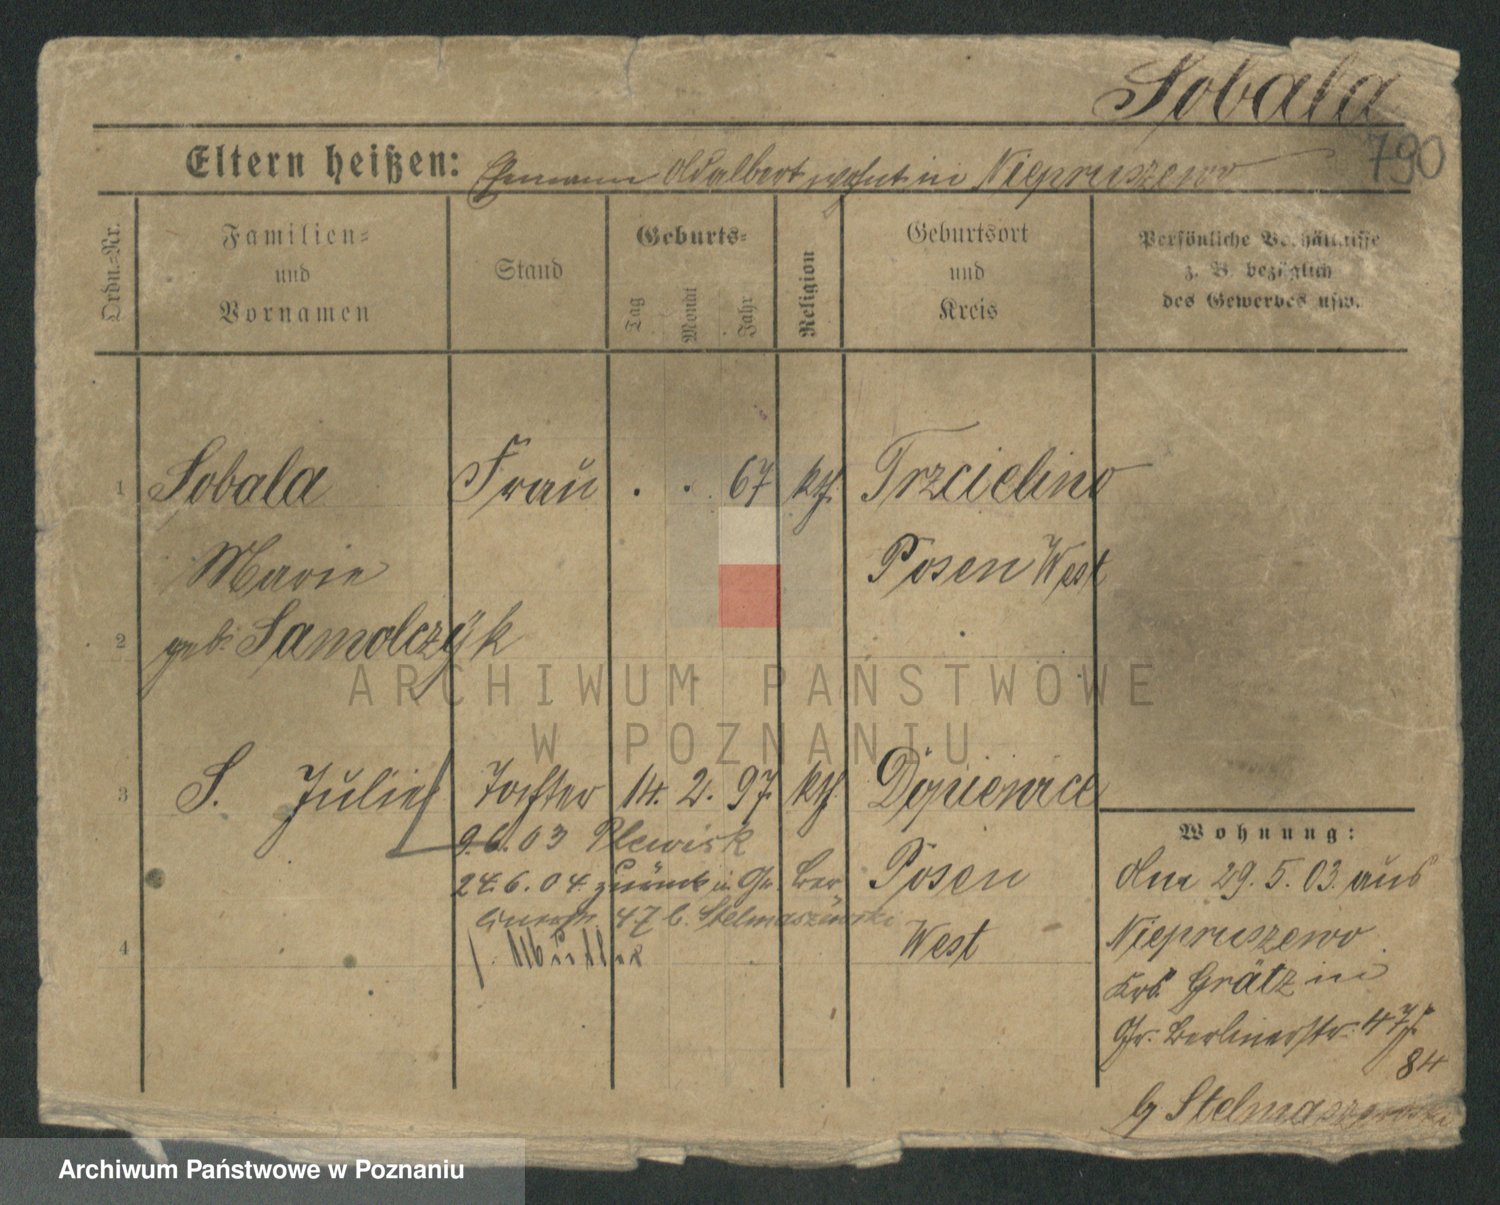 Sobala
790
Eltern heißen: Ehemann Adalbert wohnt in Niepruszewo
Ordn.-Nr.
Familien-
und
Vornamen
Stand
Geburts-
Tag
Monat
Jahr
Religion
Geburtsort
und
Kreis
Persönliche Verhältnisse
z. B. bezüglich
des Gewerbes usw.
1 Sobala Frau . . 67 kth. Trzcielino
Marie Posen West
2 geb. Samolczÿk
3 S. Julie Tochter 14. 2. 97. kth. Dopiewice
9.6.03 Plewisk
24.6.04. zurück in Gr. Ber Posen
linerstr. 47 b. Stelmaszewski
West
4
Wohnung:
Am 29.5.03. aus
Niepruszewo
Krs. Grätz in
Gr. Berlinerstr. 47
84
b/ Stelmaszewski
ARCHIWUM PAŃSTWOWE
W POZNANIU
Archiwum Państwowe w Poznaniu